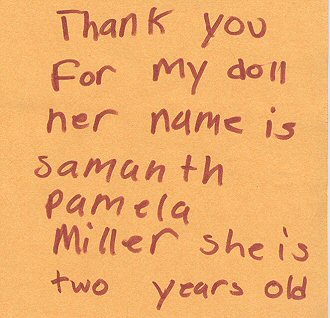 Thank you
For my doll
her name is
samanth
pamela
Miller she is
two years old